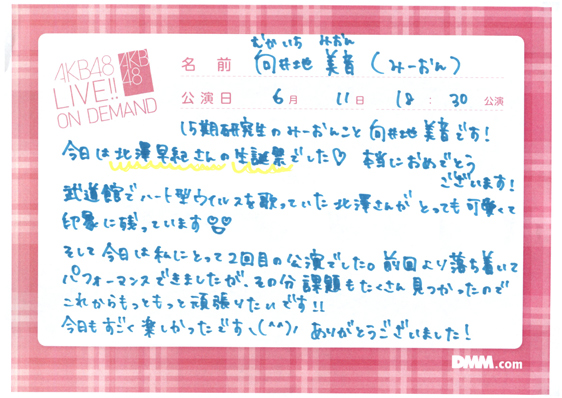 AKB48
LIVE!!
ON DEMAND
AKB
48
むかいち みおん
名前 向井地 美音 (みーおん)
公演日 6月 11日 18:30 公演
15期研究生のみーおんこと 向井地 美音です!
今日は北澤早紀さんの生誕祭でした♡ 本当におめでとう
ございます!
武道館でハート型ウイルスを歌っていた北澤さんが とっても可愛くて
印象に残っています
そして今日は私にとって2回目の公演でした。前回より落ち着いて
パフォーマンスできましたが、その分課題もたくさん見つかったので
これからもっともっと頑張りたいです!!
今日もすごく楽しかったですヽ(^^)ノ ありがとうございました!
DMM.com